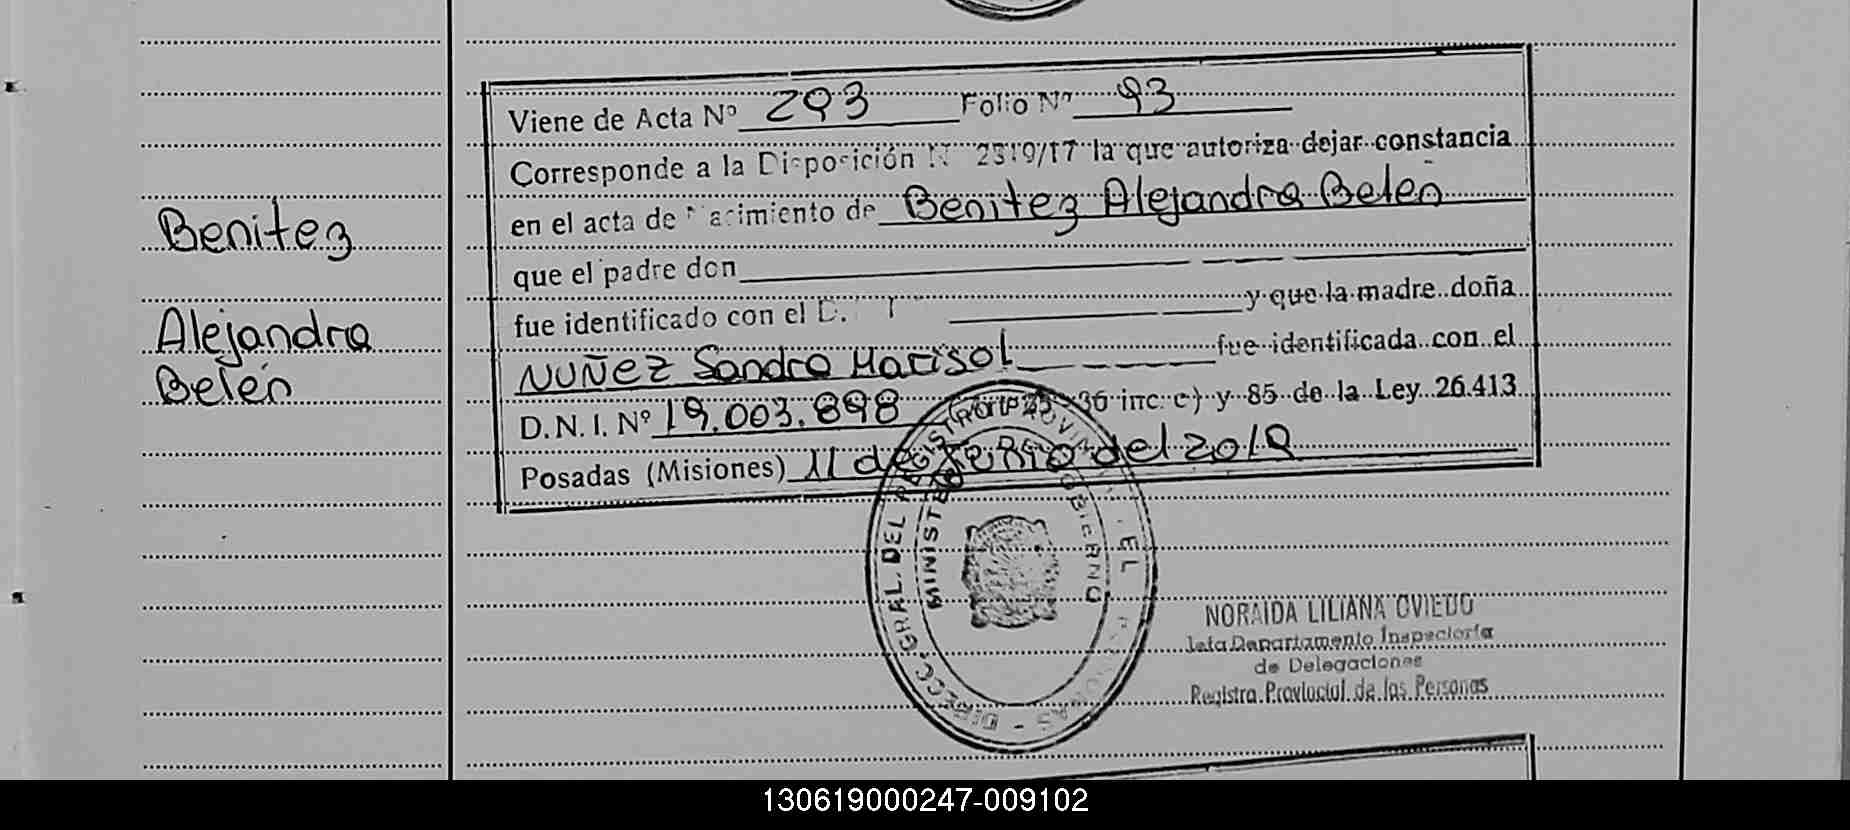 Viene de Acta Nº 293 Folio Nº 93
Corresponde a la Disposición Nº 2319/17 la que autoriza dejar constancia
en el acta de Nacimiento de Benitez Alejandra Belén
que el padre don
fue identificado con el D. y que la madre doña
NUÑEZ Sandra Marisol fue identificada con el
D.N.I. Nº 19.003.898 36 inc. c) y 85 de la Ley 26.413
Posadas (Misiones) 11 de del 2018
Benitez
Alejandra
Belén
DIRECC. GRAL. DEL REGISTRO PROVINCIAL DE LAS PERSONAS
MINISTERIO DE GOBIERNO
NORAIDA LILIANA OVIEDO
Jefa Departamento Inspectoría
de Delegaciones
Registro Provincial de las Personas
130619000247-009102